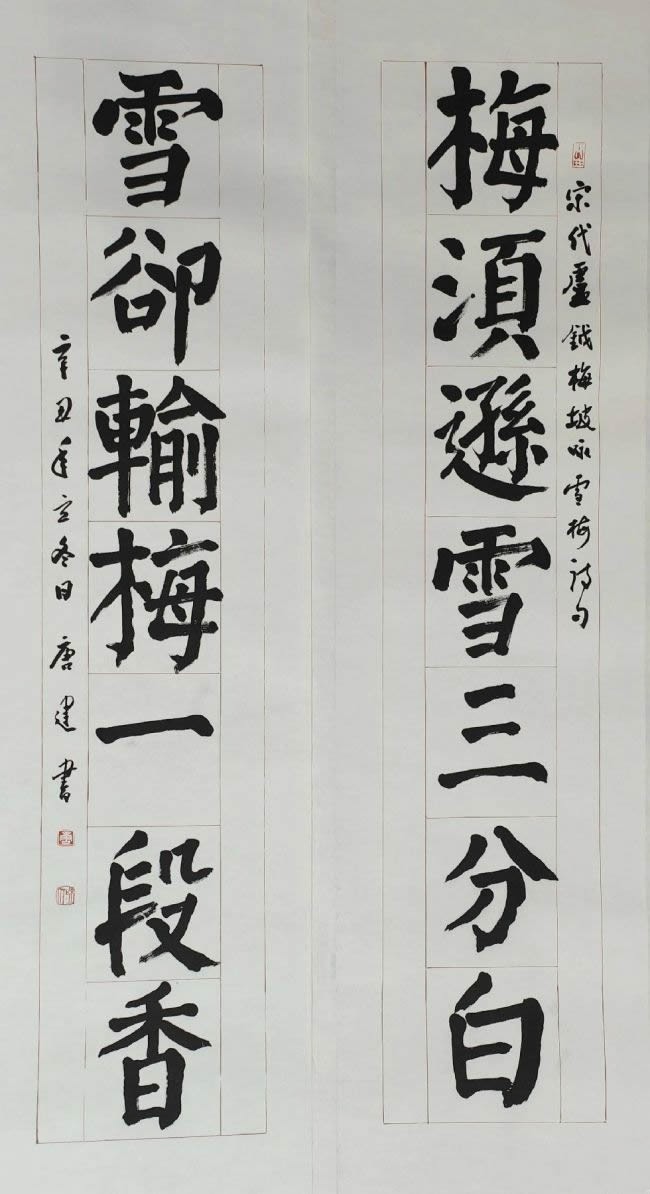 宋代盧鉞梅坡咏雪梅詩句
梅須遜雪三分白
雪卻輸梅一段香
辛丑年立冬日唐建書